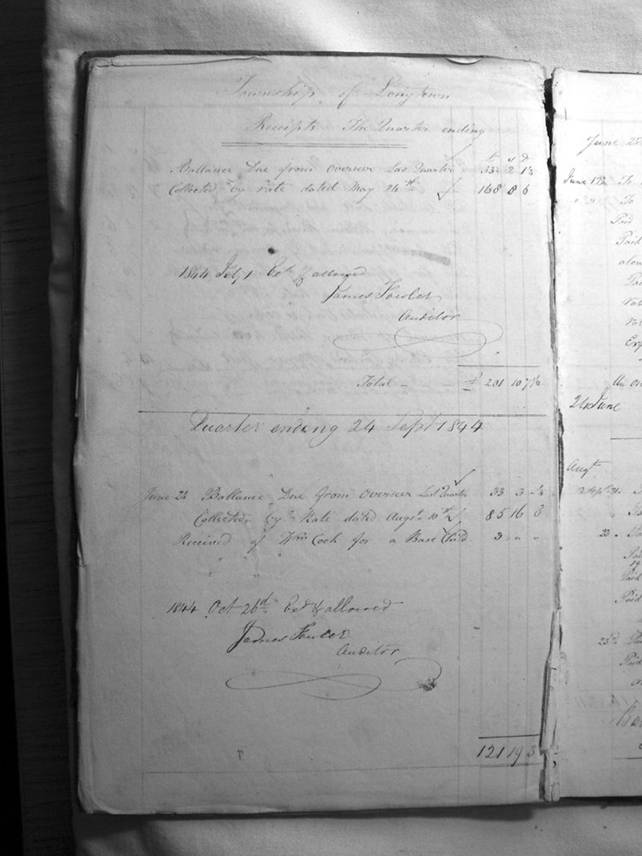 Township of Longtown
Receipts The Quarter ending
£ s d
Ballance Due from overseer Las Quarter 33 2 1½
Collected by rate dated May 24th 168 8 6
1844 July 1 Exd & allowed
James Fowler
Auditor
Total - £ 201 10 7½
Quarter ending 24 Sept 1844
June 24 Ballance Due from overseer Last Quarter 33 3
Collected by Rate dated Augt 10th 85 16
Received of Wm Cook for a Base Child 3 - -
" "
1844 Oct 26th Exd & allowed
James Fowler
Auditor
121 19 3
June 25
June To
To
Paid
Paid
24 June
Augt
22
Paid
Paid
25th
Paid